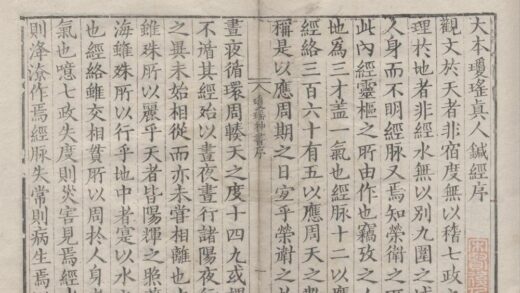 大本瓊瑤真人鍼經序
觀文於天者非宿度無以稽七政之
理於地者非經水無以別九圍之域
人身而不明經脉又焉知榮衛之
此内經靈樞之所由作也竊攷之人
地為三才蓋一氣也經脉十二以應
經絡三百六十有五以應周天之
稱是以應周期之日宜乎榮衛之
瓊瑤神書序
晝夜循環周輳天之度十四九或
不循其經始以晝夜行諸陽夜行
之異未始相從而亦未嘗相離也
雖殊所以麗乎天者皆陽輝之照
海雖殊所以行乎地中者寔以水
也經絡雖交相貫所以周於人身
氣也噫七政失度則災害見焉經水
則洚潦作焉經脉失常則病生焉